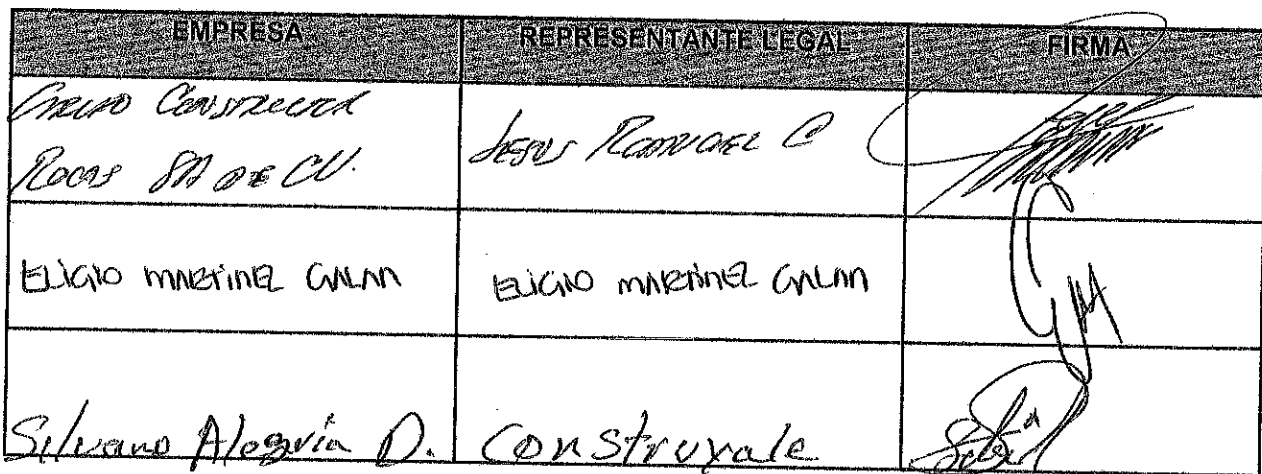 EMPRESA REPRESENTANTE LEGAL FIRMA
GRUPO CONSTRUCTOR
ROCAS SA DE CV. JESUS C
ELIGIO MARTINEZ GALAN ELIGIO MARTINEZ GALAN
Silvano Alegría D. Construyale